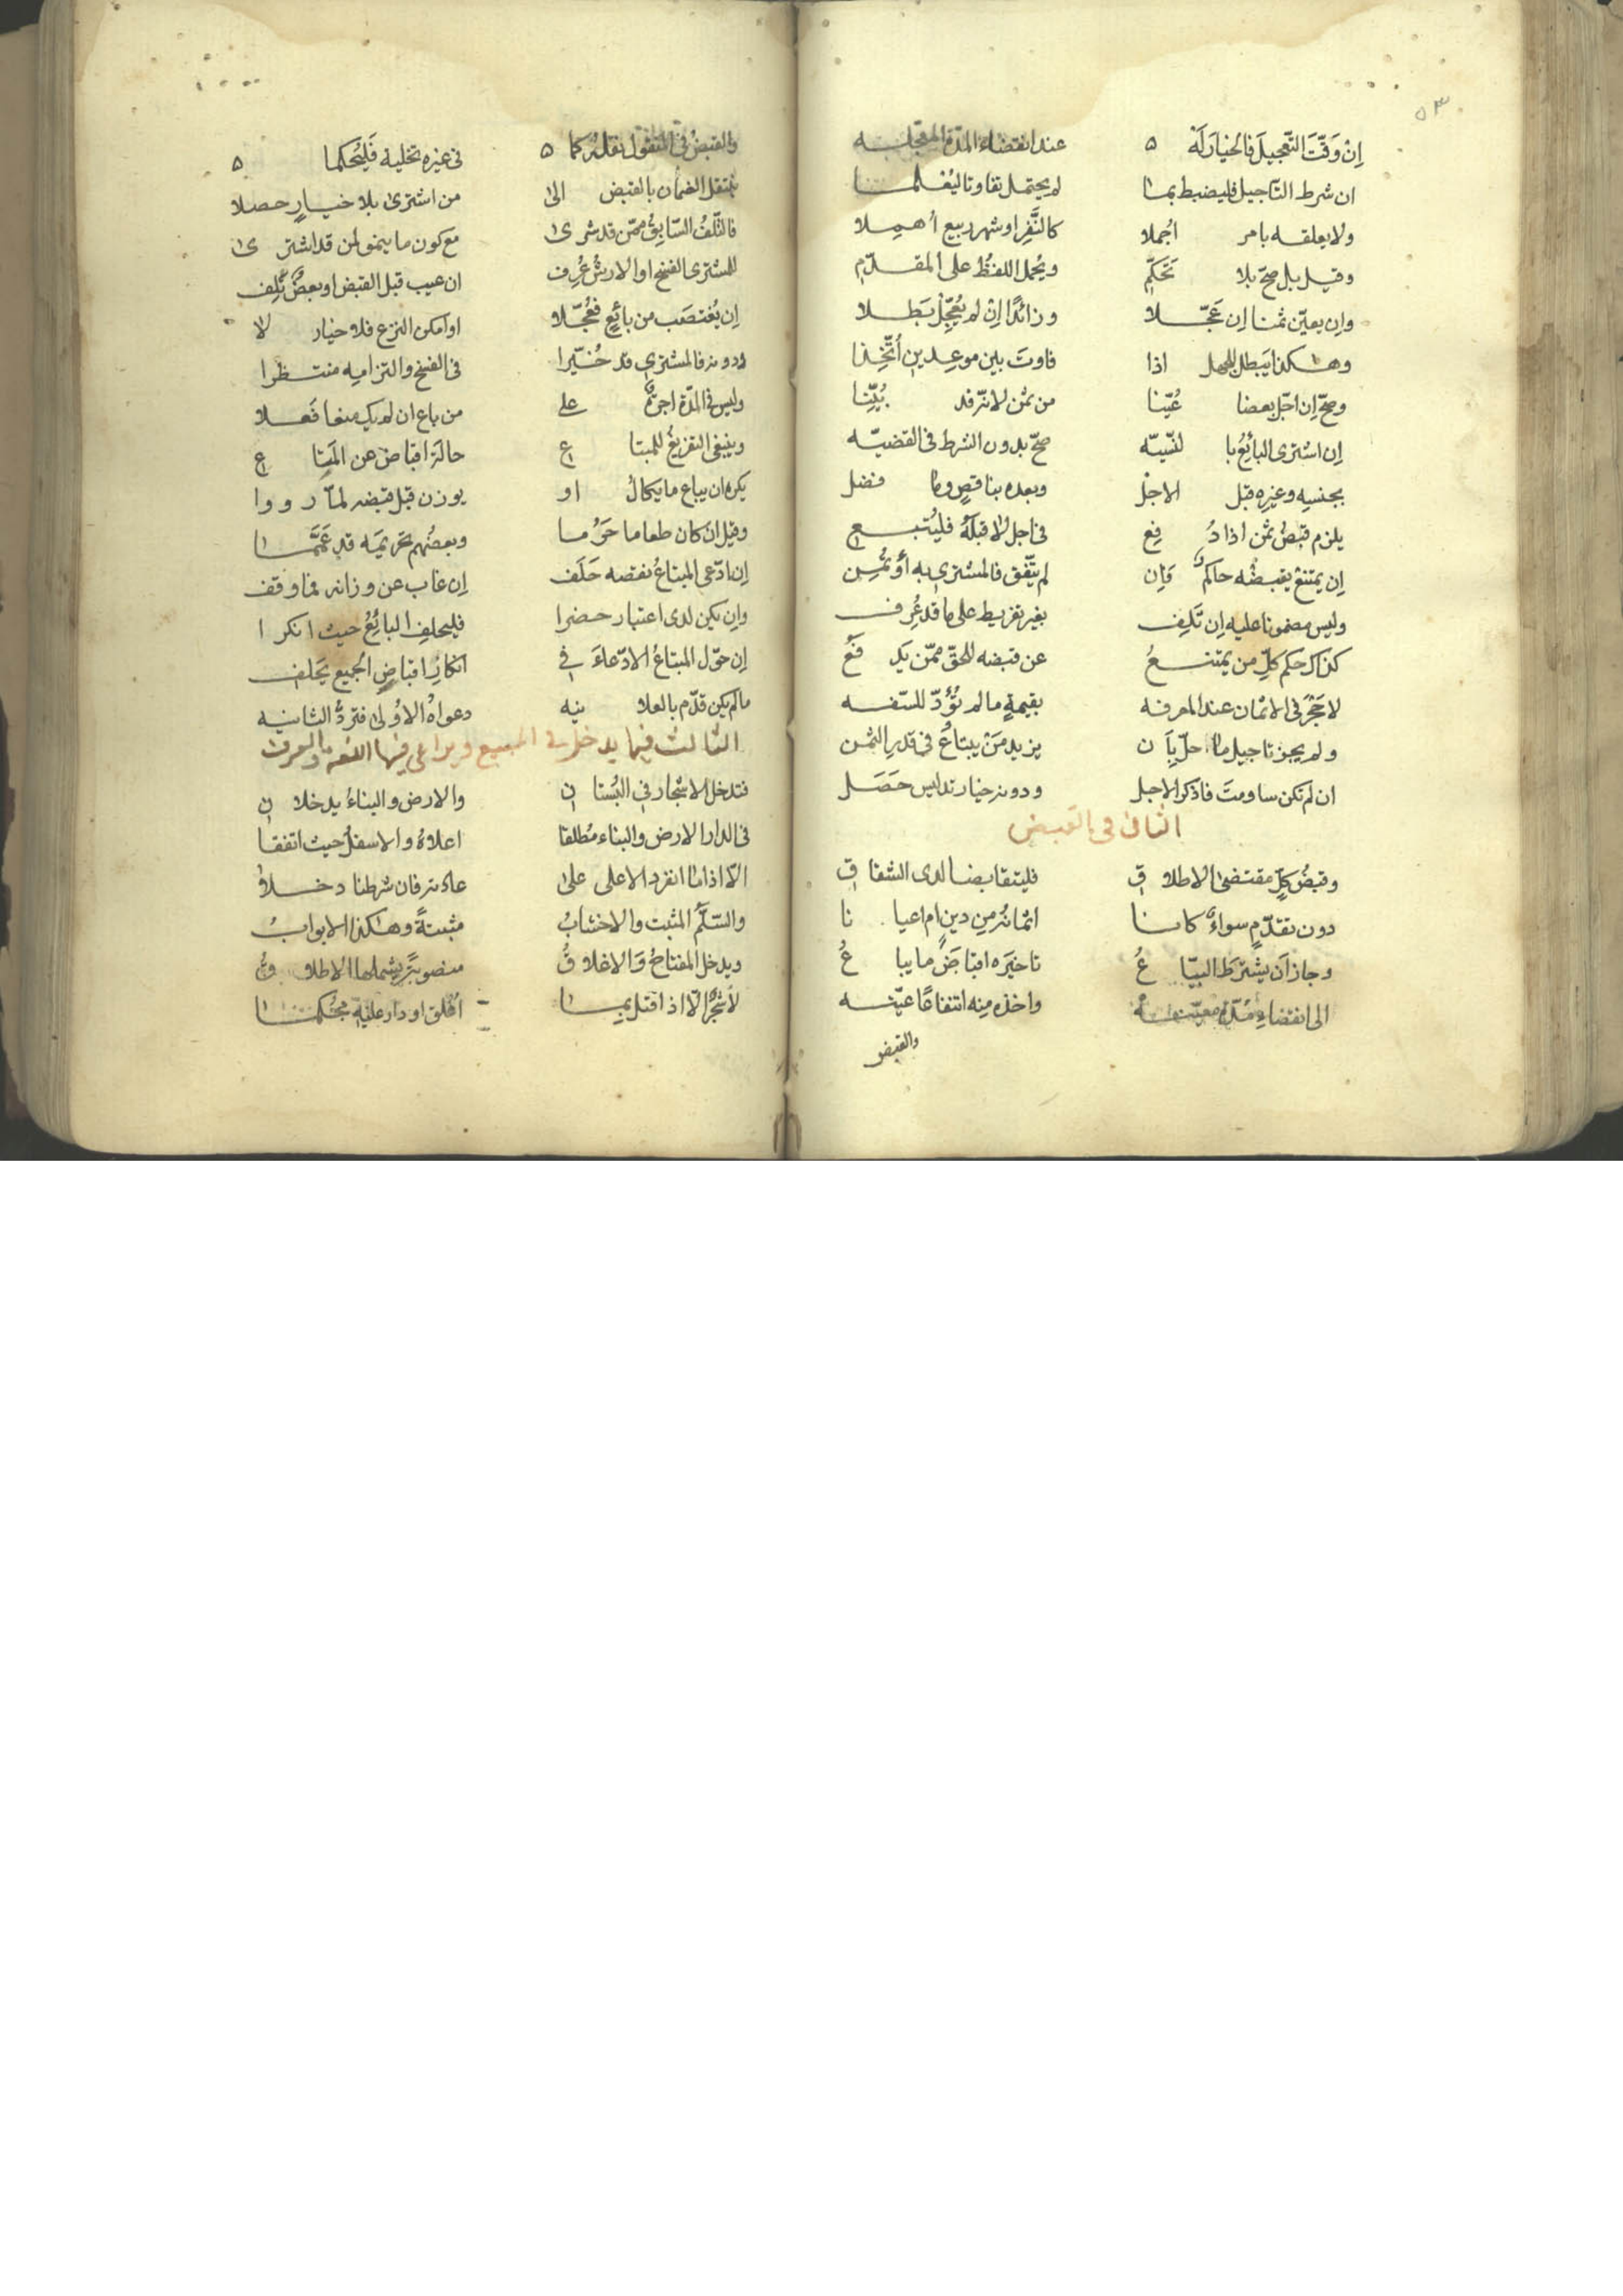 ٥٣
إن وَقّتَ التّعجيلَ فالخيارَ لَهْ عند انقضاء المدّة المعجّلـه
ان شرط التأجيل فليضبط بما لم يحتمل تفاوتا ليُعلمـا
ولا يعلقه بامر اجُملا كالنَّفر او شهر ربيع أُهمِلا
وقيل بل صحّ بلا تَحَكّمِ ويُحمل اللفظُ على المقدّم
وان يعيّن ثمنا إن عَجّلا وزائدًا إن لم يُعجِّل بَطلا
وهكذا يَبطل للجهل اذا فاوتَ بين موعدين أُتُّخِذا
وصحّ إن اجّل بعضا عُيّنا من ثمن لانّه قد بُيّنا
إن اشترى البائعُ با لنّسيّه صحّ بدون الشرط في القضيّه
بجنسِهِ وغيرِهِ قبل الاجلْ وبعده بناقصٍ وما فضل
يلزم قبضُ ثمن اذا دُفِع في اجل لا قبلَهُ فليُتبع
إن يمتنعْ يقبضُه حاكم وَإن لم يتّفق فالمشتري به أُوتُمِن
وليس مضمونا عليه إن تَلِف بغير تفريط على ما قد عُرِف
كذاك حكم كلّ من يمتنعُ عن قبضه للحقّ ممّن يدفعُ
لا حَجْرَ في الاثمان عند المعرفه بقيمةٍ ما لم تُؤدّ للسّفه
ولم يجز تاجيل ما حلّ بِاَن يزيد مَنْ يبتاعُ في قدرِ الثمن
ان لم تكن ساومتَ فاذكر الاجل ودونه خيار تدليس حَصَل
الثاني في القبض
وقبضُ كلٍّ مقتضىٰ الاطلاق فليتقابضا لدى الشقاق
دون تقدّمٍ سواءٌ كانا اثمانُه من دينٍ ام اعيانا
وجاز اَن يشترطَ البيّاعُ تاخيرَه اقباضَ ما يباعُ
الى انقضاء مُدّة معيّنه واخذه منه انتفاعًا عيّنه
والقبض
والقبضُ في المنقول نقلُه كما في غيره تخلية فَليُحكما
ينتقل الضمان بالقبض الىٰ من اشترى بلا خيارٍ حصلا
فالتّلفُ السّابقُ ممّن قد شرىٰ مع كون ما ينمو لمن قد اشترىٰ
للمشتري الفسخ او الارشُ عُرِف ان عيب قبل القبض او بعضٌ تَلِف
إن يُغتصَب من بائعٍ فعُجّلا او امكن النزع فلا خيار لا
ودونه فالمشتري قد خُيّرا في الفسخ والتزامه منتظرا
وليس في المدّة اجرةٌ علىٰ من باع ان لم يك منعا فَعلا
وينبغي التفريغُ للمبتاع حالة اقباضٍ عن المتاع
يكره ان يباع ما يكالُ او يوزن قبل قبضه لما رووا
وقيل ان كان طعاما حَرُما وبعضُهم تحريمَه قد عَمّما
إن ادّعى المبتاعُ نقصه حَلَف إن غاب عن وزانه فما وقف
وإن يكن لدى اعتبار حضرا فليحلفِ البائعُ حيث انكرا
إن حوّل المبتاعُ الادّعاءَ في انكارِ اقباضِ الجميع يَحلفِ
ما لم يكن قدّم بالعلانيه دعواهُ الاُولىٰ فتردُّ الثانيه
الثالث فيما يدخل في المبيع ويراعى فيها اللغه والعرف
فتدخل الاشجار في البُستانِ والارض والبناءُ يدخلانِ
في الدار الارض والبناء مطلقا اعلاهُ والاسفلُ حيث اتفقا
الّا اذا ما انفرد الاعلى علىٰ عادته فان شرطنا دخلا
والسّلّمُ المثبت والاخشابُ مثبتةً وهكذا الابوابُ
ويدخل المفتاحُ والاغلاقُ منصوبةً يشملها الاطلاقُ
لا شجرٌ الّا اذا اقتل بما اُغلق او دار عليهِ مُحكما